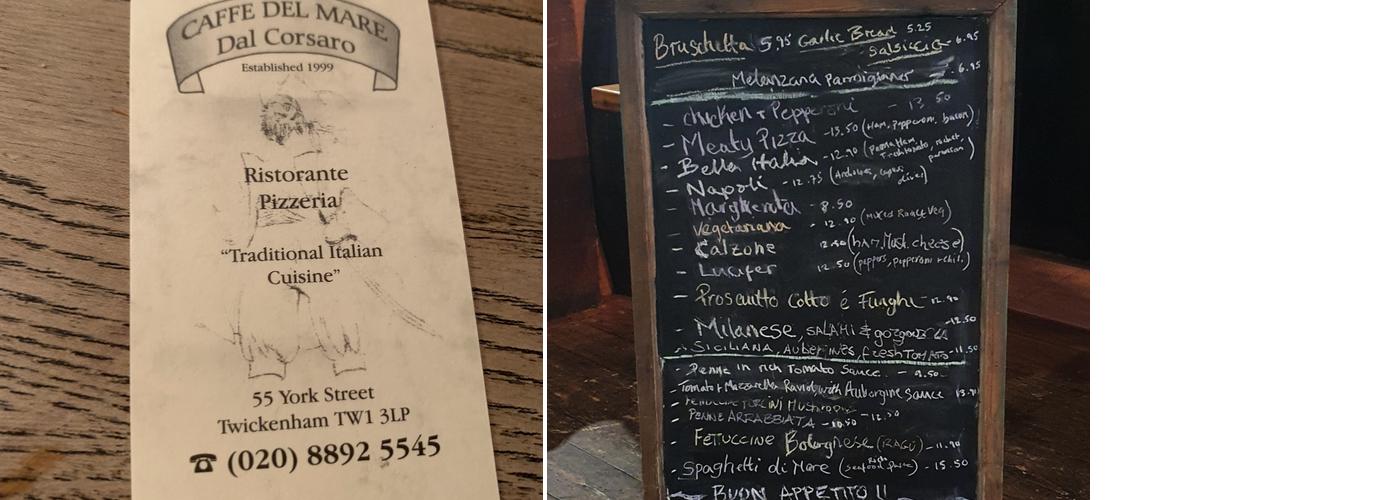 CAFFE DEL MARE
Dal Corsaro
Established 1999
Ristorante
Pizzeria
“Traditional Italian
Cuisine”
55 York Street
Twickenham TW1 3LP
☎ (020) 8892 5545
Bruschetta 5,95 Garlic Bread 5.25
Salsiccia - 6.95
Melanzana Parmigiana - 6.95
- chicken + Pepperoni - 13.50
- Meaty Pizza - 13.50 (Ham, Pepperoni, bacon)
- Bella Italia - 12.90 (Parma Ham, Fresh tomato, rocket, parmesan)
- Napoli - 12.75 (Anchovies, capers, olives)
- Margherita - 8.50
- Vegetariana - 12.90 (Mixed Roast Veg)
- Calzone (HAM, Mush. cheese)
- Lucifer 12.50 (peppers, pepperoni + chil.)
- Proscuitto Cotto é Funghi - 12.90
- Milanese, SALAMI & gorgonzola - 12.50
- SICILIANA, AUBERGINES, fresh TOMATO - 11.50
- Penne in rich Tomato Sauce - 9.50
- Tomato + Mozzarella Ravioli with Aubergine Sauce
- FETTUCCINE PORCINI Mushroom - 12.50
- PENNE ARRABBIATA - 10.50
- FETTUCCINE Bolognese (RAGÚ) - 11.90
- Spaghetti di Mare (seafood) - 15.50
BUON APPETITO !!